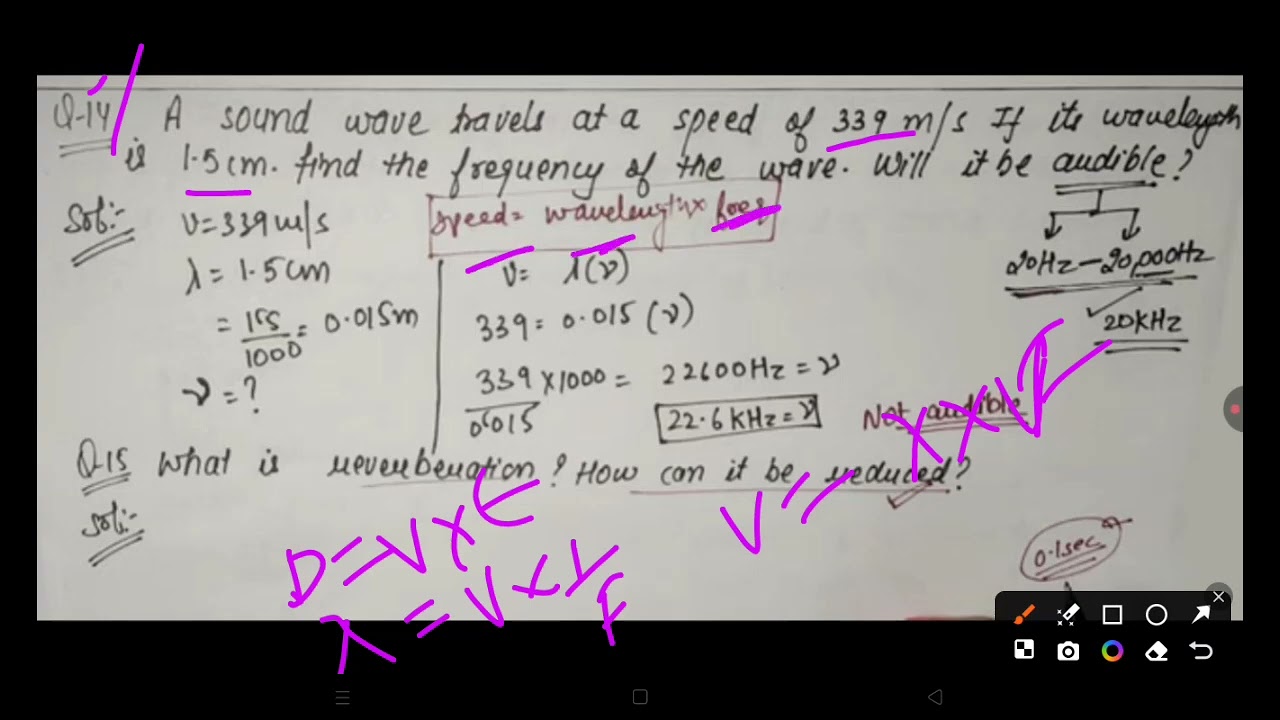 Q.14 A sound wave travels at a speed of 339 m/s If its wavelength
is 1.5 cm. find the frequency of the wave. Will it be audible?
Sol:-
v=339m/s
λ=1.5cm
= 15/1000 = 0.015m
ν=?
speed= wavelength× freq
v= λ(ν)
339= 0.015 (ν)
339×1000/0015 = 22600Hz=ν
22.6 KHz=ν
Not audible
20Hz-20,000Hz
20KHz
Q.15 What is reverberation? How can it be reduced?
Sol:-
0.1sec
D=V×t
λ=V×1/f
V=λ×f